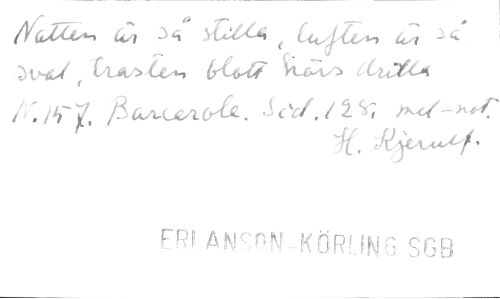 Natten är så stilla, luften är så
sval, trasten blott hörs drilla
N. 157. Barcarole. Sid. 128. mel-not.
H. Kjerulf.
ERLANSON-KÖRLING SGB